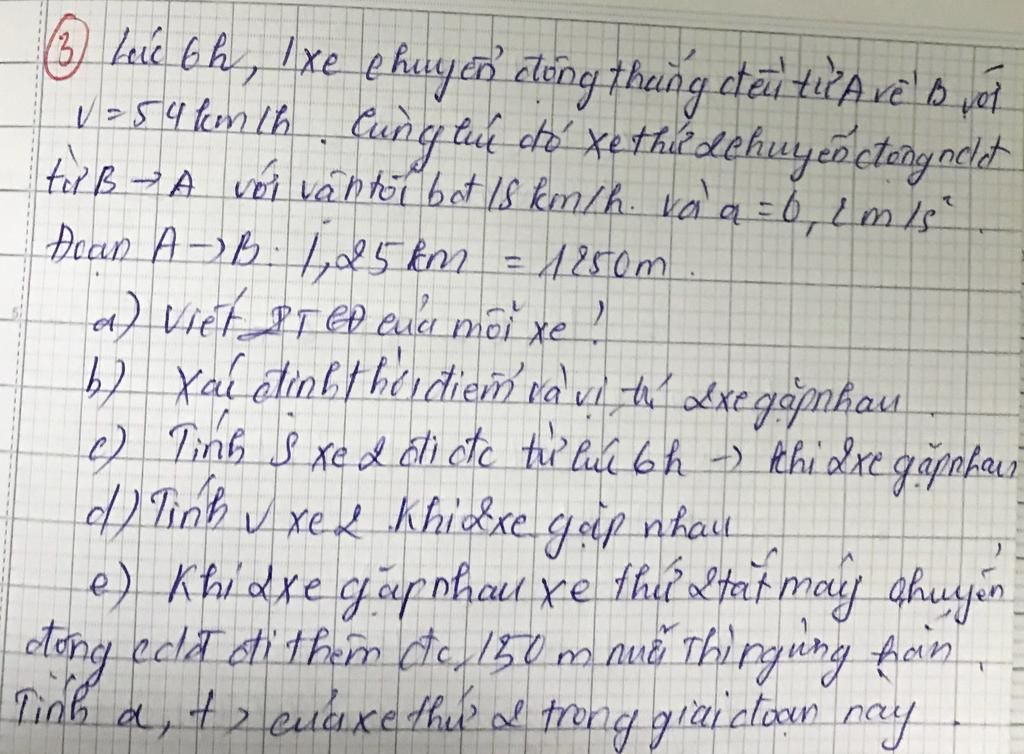 ③ Lúc 6h, 1 xe chuyển động thẳng đều từ A về B với
v = 54 km/h. Cùng lúc đó xe thứ 2 chuyển động ncdđ
từ B → A với vận tốc bđ 18 km/h. và a = 0, 2 m/s².
Đoạn A → B: 1,25 km = 1250m.
a) Viết PTCĐ của mỗi xe!
b) Xác định thời điểm và vị trí 2 xe gặp nhau.
c) Tính S xe 2 đi đc từ lúc 6h → khi 2 xe gặp nhau
d) Tính v xe 2 khi 2 xe gặp nhau
e) Khi 2 xe gặp nhau xe thứ 2 tắt máy chuyển
động cdđ đi thêm đc 150 m nữa thì ngừng hẳn.
Tính a, t > của xe thứ 2 trong giai đoạn này.